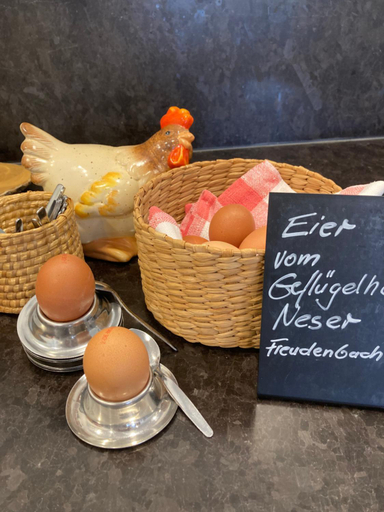 Eier
vom
Geflügelh
Neser
Freudenbach